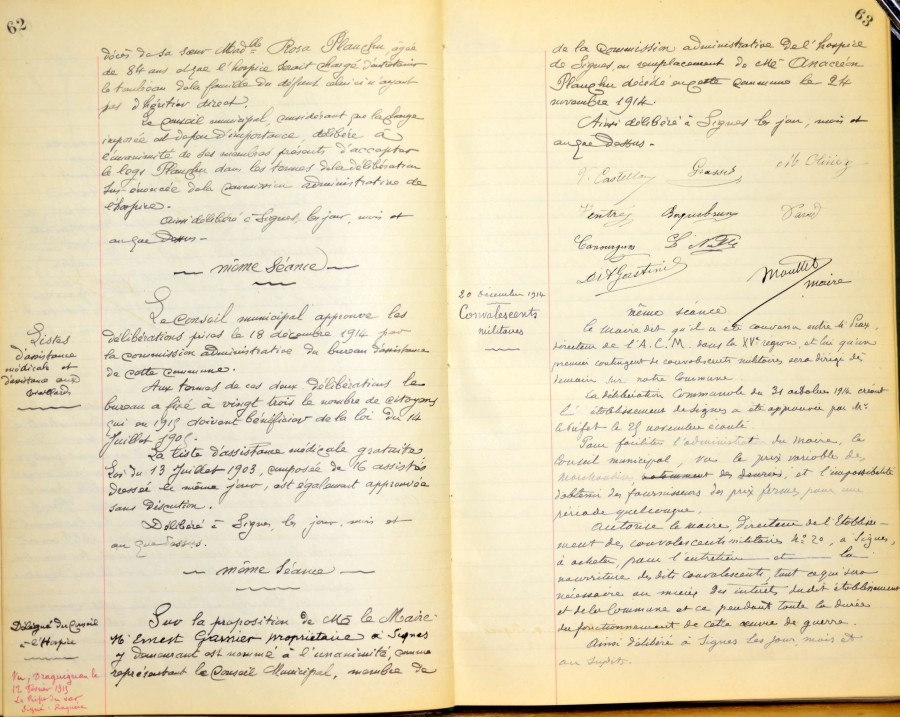 62
décès de sa sœur Mad^lle Rosa Planchu âgée
de 84 ans et que l'hospice serait chargé d'entretenir
le tombeau de la famille du défunt celui-ci n'ayant
pas d'héritier direct.
Le conseil municipal, considérant que la charge
imposée est de peu d'importance, délibère à
l'unanimité de ses membres présents d'accepter
le legs Planchu dans les termes de la délibération
sus-énoncée de la commission administrative de
l'hospice.
Ainsi délibéré à Signes, les jour, mois et
an que dessus -
même séance
Listes
d'assistance
médicale et
d'assistance aux
vieillards
Le Conseil municipal approuve les
délibérations prises le 18 décembre 1914 par
la commission administrative du bureau d'assistance
de cette commune.
Aux termes de ces deux délibérations le
bureau a fixé à vingt trois le nombre de citoyens
qui en 1915 doivent bénéficier de la loi du 14
Juillet 1905.
La liste d'assistance médicale gratuite,
Loi du 13 Juillet 1903, composée de 16 assistés
dressée le même jour, est également approuvée
sans discution.
Délibéré à Signes, les jour, mois et
an que dessus.
même séance
Délégué du Conseil
à l'Hospice
Sur la proposition de M^r le Maire
M^r Ernest Garnier propriétaire à Signes
y demeurant est nommé à l'unanimité, comme
représentant le Conseil Municipal, membre de
Vu, Draguignan le
12 février 1915
Le Préfet du Var
Signé :
63
de la commission administrative de l'hospice
de Signes, en remplacement de M^r Anacréon
Planchu décédé en cette commune le 24
novembre 1914.
Ainsi délibéré à Signes les jour, mois et
an que dessus -
Castellan
Olivier
Ventre
Roquebrun
Canourgues
Gastinel
Mouttet
maire
20 Décembre 1914
Convalescents
militaires
même séance
Le maire dit qu'il a été convenu entre M^r
directeur de l'A.C.M. dans la XV^e région, et lui qu'un
premier contingent de convalescents militaires sera dirigé dès
demain sur notre Commune.
La délibération Communale du 31 octobre 1914 créant
l'établissement de Signes a été approuvée par M^r
le Préfet le 25 novembre écoulé.
Pour faciliter l'administ^on du maire, le
Conseil municipal, vu le prix variable des
marchandises notamment des denrées, et l'impossibilité
d'obtenir des fournisseurs des prix fermes pour une
période quelconque.
Autorise le maire, directeur de l'Etablisse-
ment des convalescents militaires N° 20, à Signes,
à acheter, pour l'entretien et la
nourriture des dits convalescents, tout ce qui sera
nécessaire au mieux des intérêts du dit établissement
et de la Commune et ce pendant toute la durée
du fonctionnement de cette œuvre de guerre.
Ainsi délibéré à Signes les jour, mois et
an susdits.